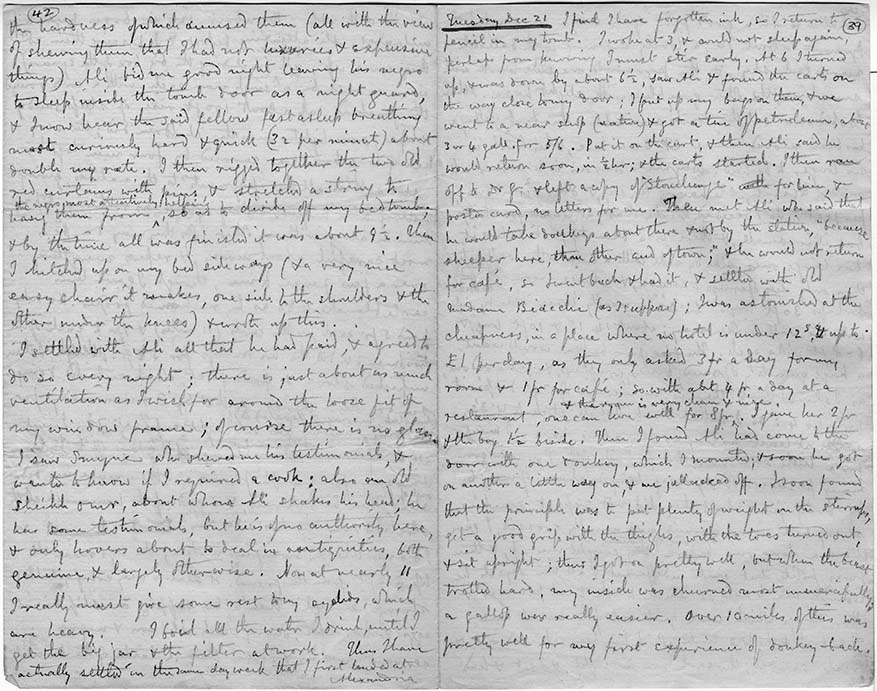 (42)
the hardness of which amused them (all with the view
of shewing them that I had not luxuries & expensive
things) Ali bid me good night leaving his negro
to sleep inside the tomb door as a night guard,
& I now hear the said fellow fast asleep breathing
most curiously hard & quick (32 per minute) about
double my rate. I then rigged together the two old
red curtains with pins & stretched a string to
the negro most attentively helping
hang them from, so as to divide off my bed tomb;
& by the time all was finished it was about 9½. Then
I hitched up on my bed sideways (& a very nice
easy chair it makes, one side to the shoulders & the
other under the knees) & wrote up this.
I settled with Ali all that he had paid, & agreed to
do so every night; there is just about as much
ventilation as I wish for around the loose fit of
my window frame; of course there is no glass.
I saw Smyne who shewed me his testimonials, &
wants to know if I required a cook; also an old
sheikh Omr, about whom Ali shakes his head; he
has some testimonials, but he is of no authority here,
& only hovers about to deal in antiquities, both
genuine, & largely otherwise. Now at nearly 11
I really must give some rest to my eyelids, which
are heavy. I boil all the water I drink, until I
get the big jar & the filter at work. Thus I have
actually settled in the same day week that I first landed at
Alexandria
(39)
Tuesday Dec 21 I find I have forgotten ink, so I return to
pencil in my tomb. I woke at 3, & could not sleep again,
perhaps from knowing I must stir early. At 6 I turned
up, & was down by about 6½, saw Ali & found the carts on
the way close to my door; I put up my bags on them, & we
went to a near shop (native) & got a tin of petroleum, about
3 or 4 galls. for 5/6. Put it on the cart, & then Ali said he
would return soon, in ½ hr; & the carts started. I then ran
off to Dr Gr. & left a copy of "Stonehenge" for him, &
posted card, no letters for me. Then met Ali who said that
he would take donkeys about there & not by the station, "because
cheaper here than other end of town;" & he would not return
for café, so I went back & had it, & settled with old
Madame (as I suppose); I was astonished at the
cheapness, in a place where no hotel is under 12s, & up to
£1 per day, as they only asked 3 fr a day for my
room & 1 fr for café; so with abt 4 fr a day at a
& the room is very clean & nice.
restaurant, one can live well for 8 fr. I gave her 2 fr
& the boy ½ beside. Then I found Ali had come to the
door with one donkey, which I mounted, & soon he got
on another a little way on, & we jallacked off. I soon found
that the principle was to put plenty of weight on the stirrups,
get a good grip with the thighs, with the toes turned out
& sit upright; thus I got on pretty well, but when the beast
trotted hard, my inside was churned most unmercifully,
a gallop was really easier. Over 10 miles of this was
pretty well for my first experience of donkey-back.